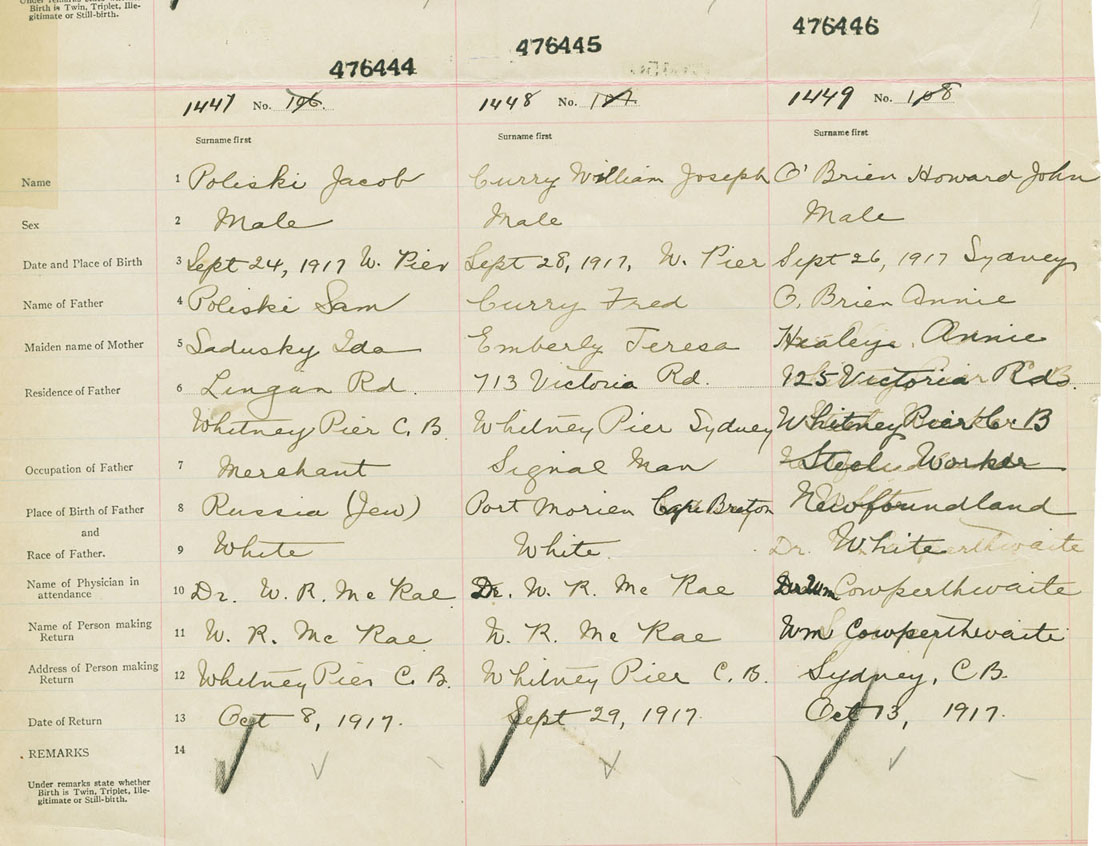 Under remarks state whether
Birth is Twin, Triplet, Ille-
gitimate or Still-birth.
476444 476445 476446
1447 No. 106. 1448 No. 107. 1449 No. 108
Surname first Surname first Surname first
Name 1 Poliski Jacob Curry William Joseph O'Brien Howard John
Sex 2 Male Male Male
Date and Place of Birth 3 Sept 24, 1917 W. Pier Sept 28, 1917, W. Pier Sept 26, 1917 Sydney
Name of Father 4 Poliski Sam Curry Fred O. Brien Annie
Maiden name of Mother 5 Sadusky Ida Emberly Teresa Healey, Annie
Residence of Father 6 Lingan Rd. 713 Victoria Rd. 125 Victoria Rd.
Whitney Pier C. B. Whitney Pier Sydney Whitney Pier C. B
Occupation of Father 7 Merchant Signal Man Steel Worker
Place of Birth of Father 8 Russia (Jew) Port Morien Cape Breton Newfoundland
and
Race of Father. 9 White White. White
Name of Physician in
attendance 10 Dr. W. R. Mc Rae Dr. W. R. Mc Rae Dr Wm Cowperthwaite
Name of Person making
Return 11 W. R. Mc Rae W. R. Mc Rae Wm Cowperthwaite
Address of Person making
Return 12 Whitney Pier C. B. Whitney Pier C. B. Sydney, C B.
Date of Return 13 Oct 8, 1917. Sept 29, 1917. Oct 13, 1917.
REMARKS 14
Under remarks state whether
Birth is Twin, Triplet, Ille-
gitimate or Still-birth.